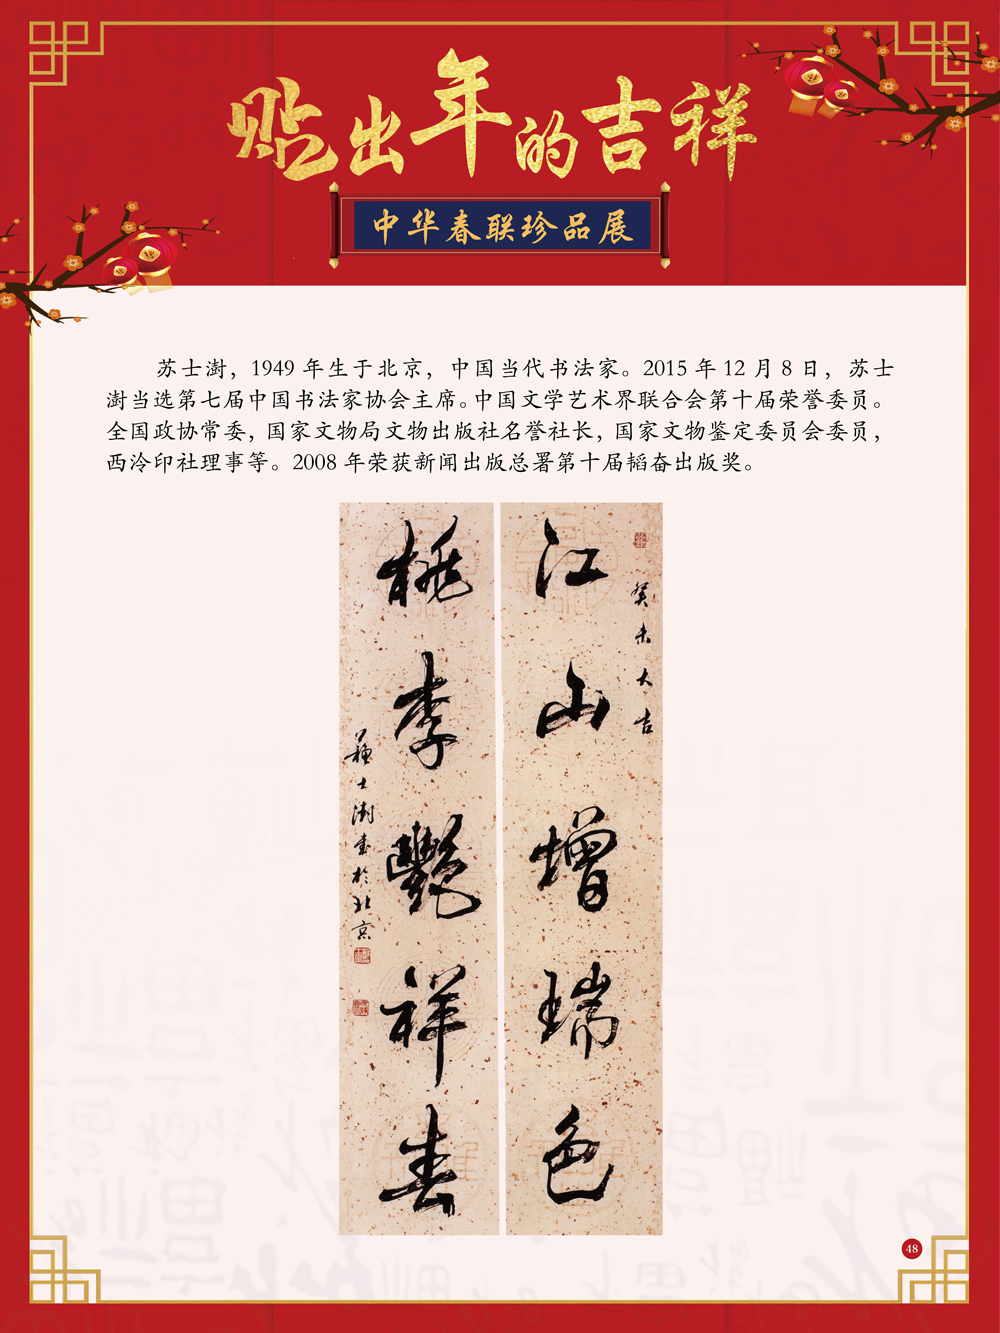 贴出年的吉祥
中华春联珍品展
苏士澍，1949 年生于北京，中国当代书法家。2015 年 12 月 8 日，苏士
澍当选第七届中国书法家协会主席。中国文学艺术界联合会第十届荣誉委员。
全国政协常委，国家文物局文物出版社名誉社长，国家文物鉴定委员会委员，
西泠印社理事等。2008 年荣获新闻出版总署第十届韬奋出版奖。
癸未大吉
江山增瑞色
桃李艷祥春
蘇士澍書於北京
48